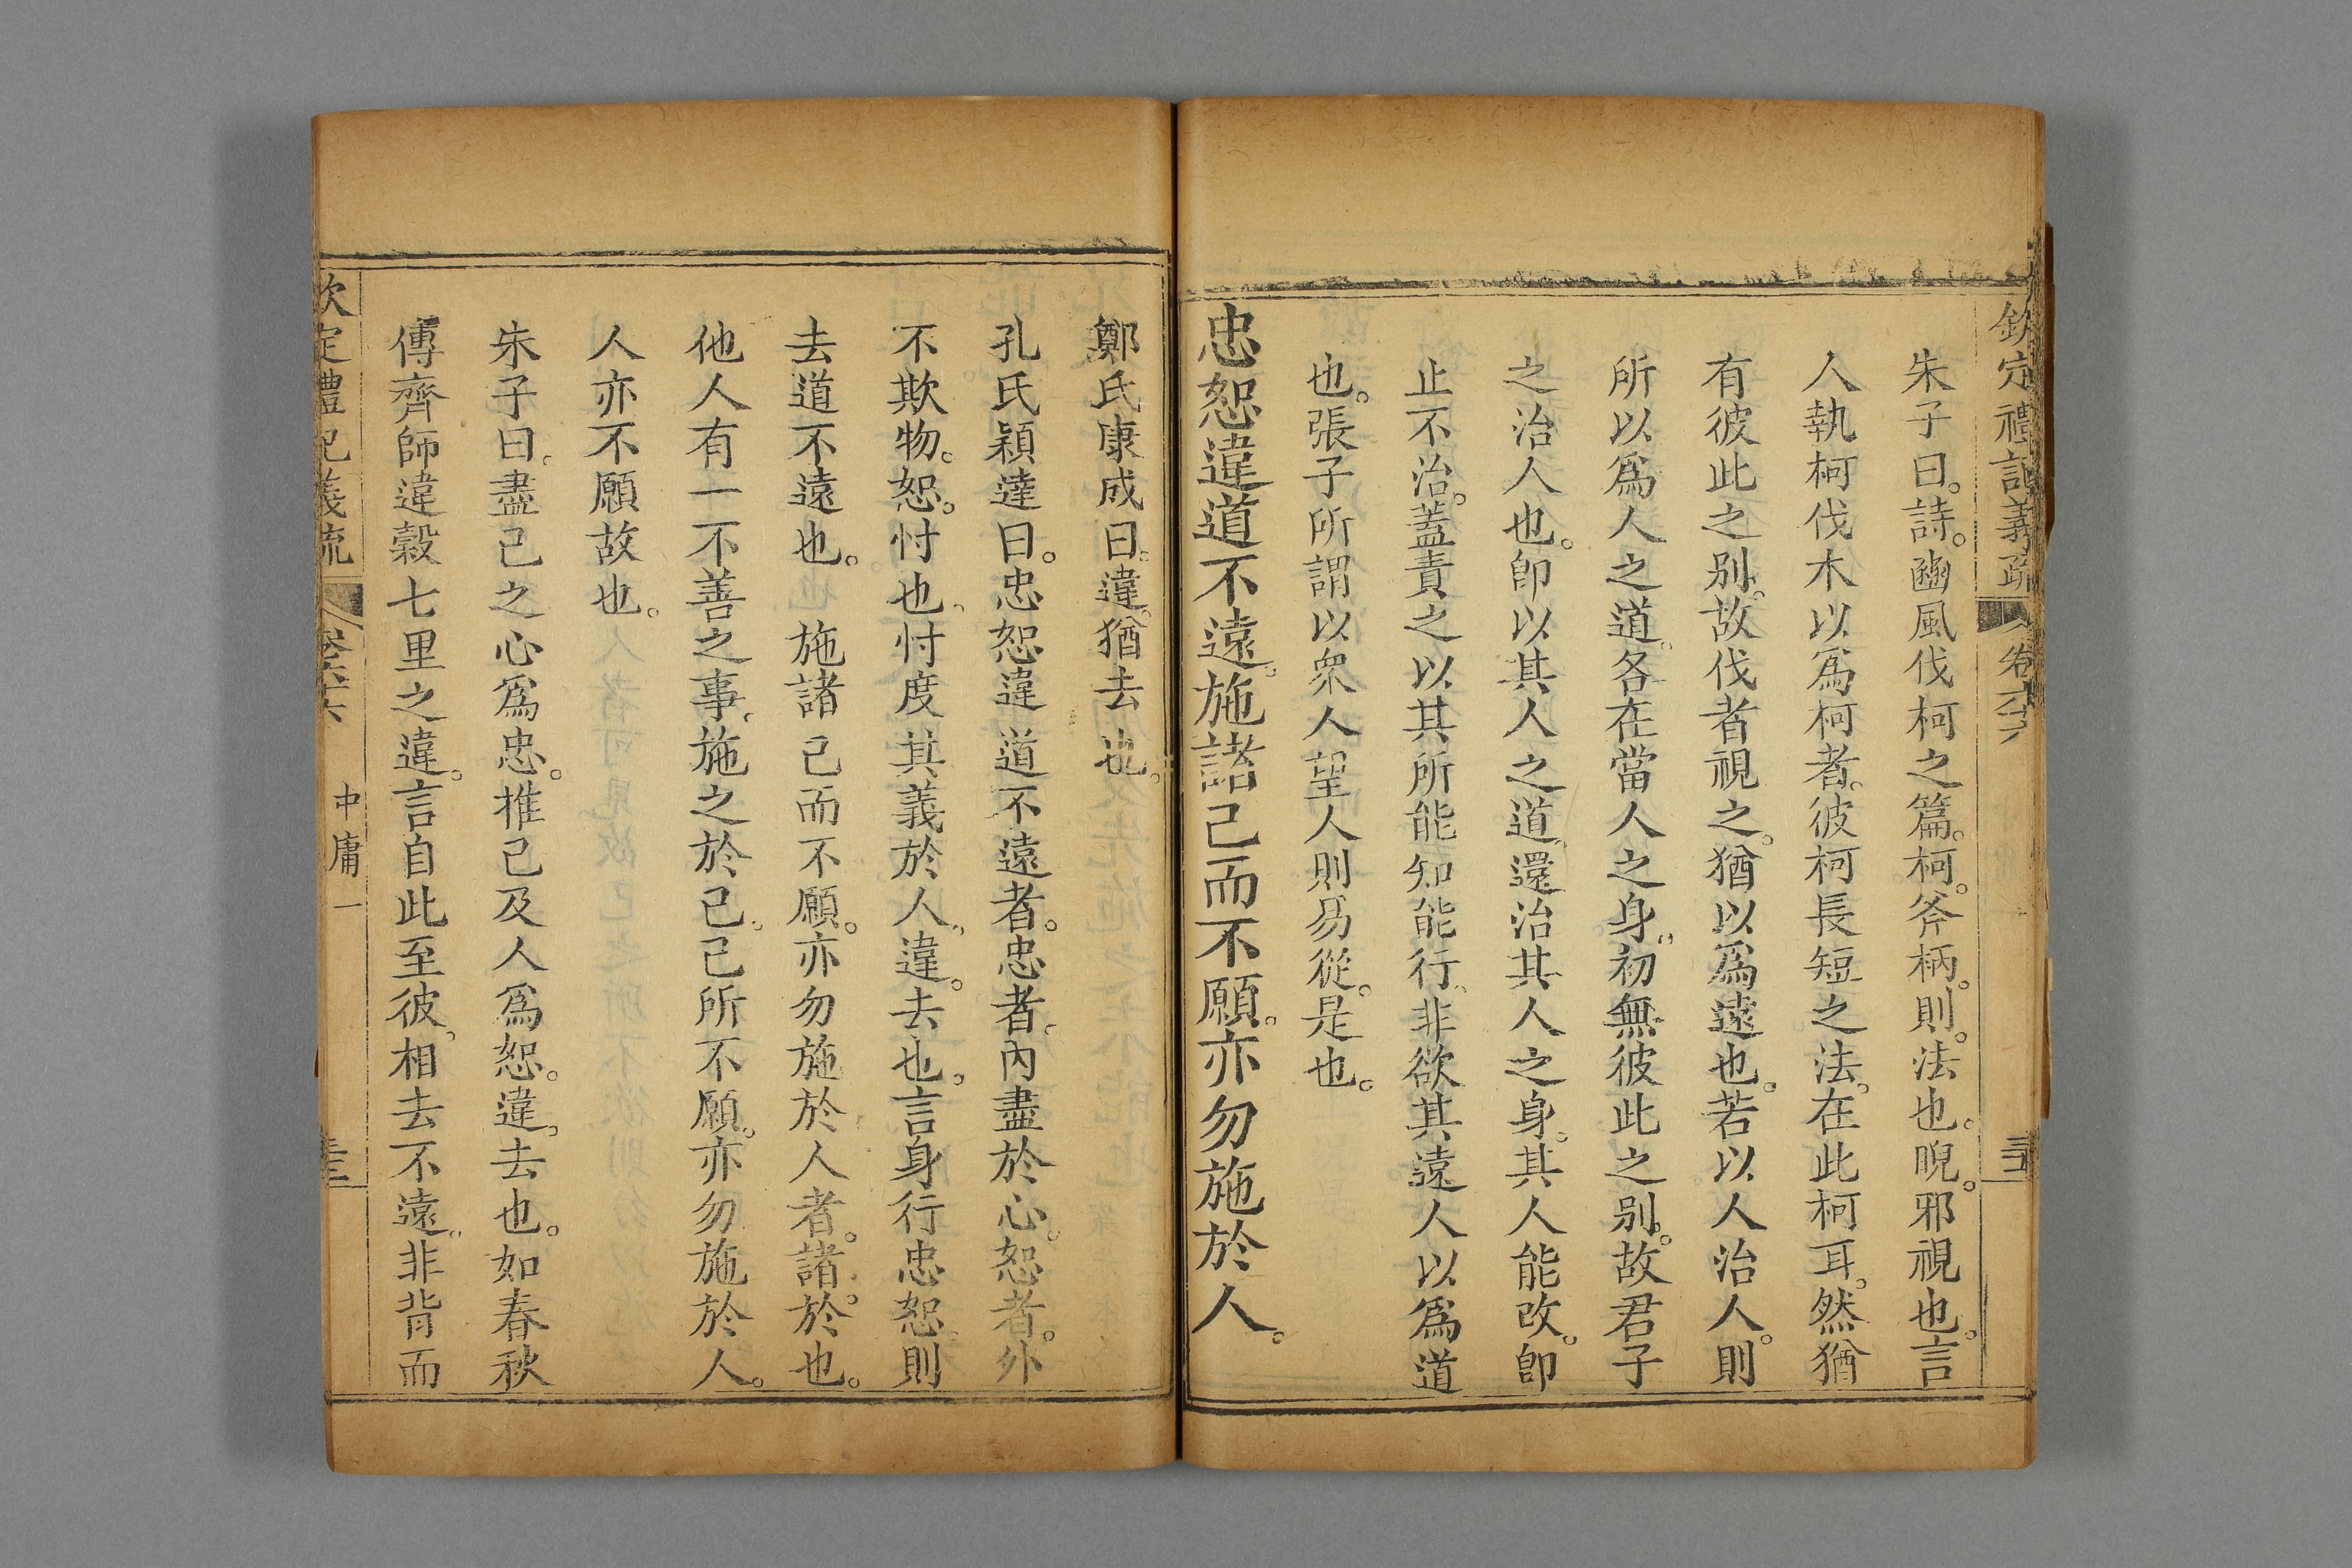 欽定禮記義疏 卷六十六
朱子曰。詩。豳風伐柯之篇。柯。斧柄。則。法也。睨。邪視也。言
人執柯伐木以爲柯者。彼柯長短之法。在此柯耳。然猶
有彼此之别。故伐者視之。猶以爲遠也。若以人治人。則
所以爲人之道。各在當人之身。初無彼此之别。故君子
之治人也。卽以其人之道。還治其人之身。其人能改。卽
止不治。蓋責之以其所能知能行。非欲其遠人以爲道
也。張子所謂以衆人望人則易從。是也。
忠恕違道不遠。施諸己而不願。亦勿施於人。
鄭氏康成曰。違。猶去也。
孔氏穎達曰。忠恕違道不遠者。忠者。內盡於心。恕者。外
不欺物。恕。忖也。忖度其義於人。違。去也。言身行忠恕。則
去道不遠也。施諸己而不願。亦勿施於人者。諸。於也。
他人有一不善之事。施之於己。己所不願。亦勿施於人。
人亦不願故也。
朱子曰。盡己之心爲忠。推己及人爲恕。違。去也。如春秋
傳齊師違穀七里之違。言自此至彼。相去不遠。非背而
欽定禮記義疏 卷六十六 中庸一